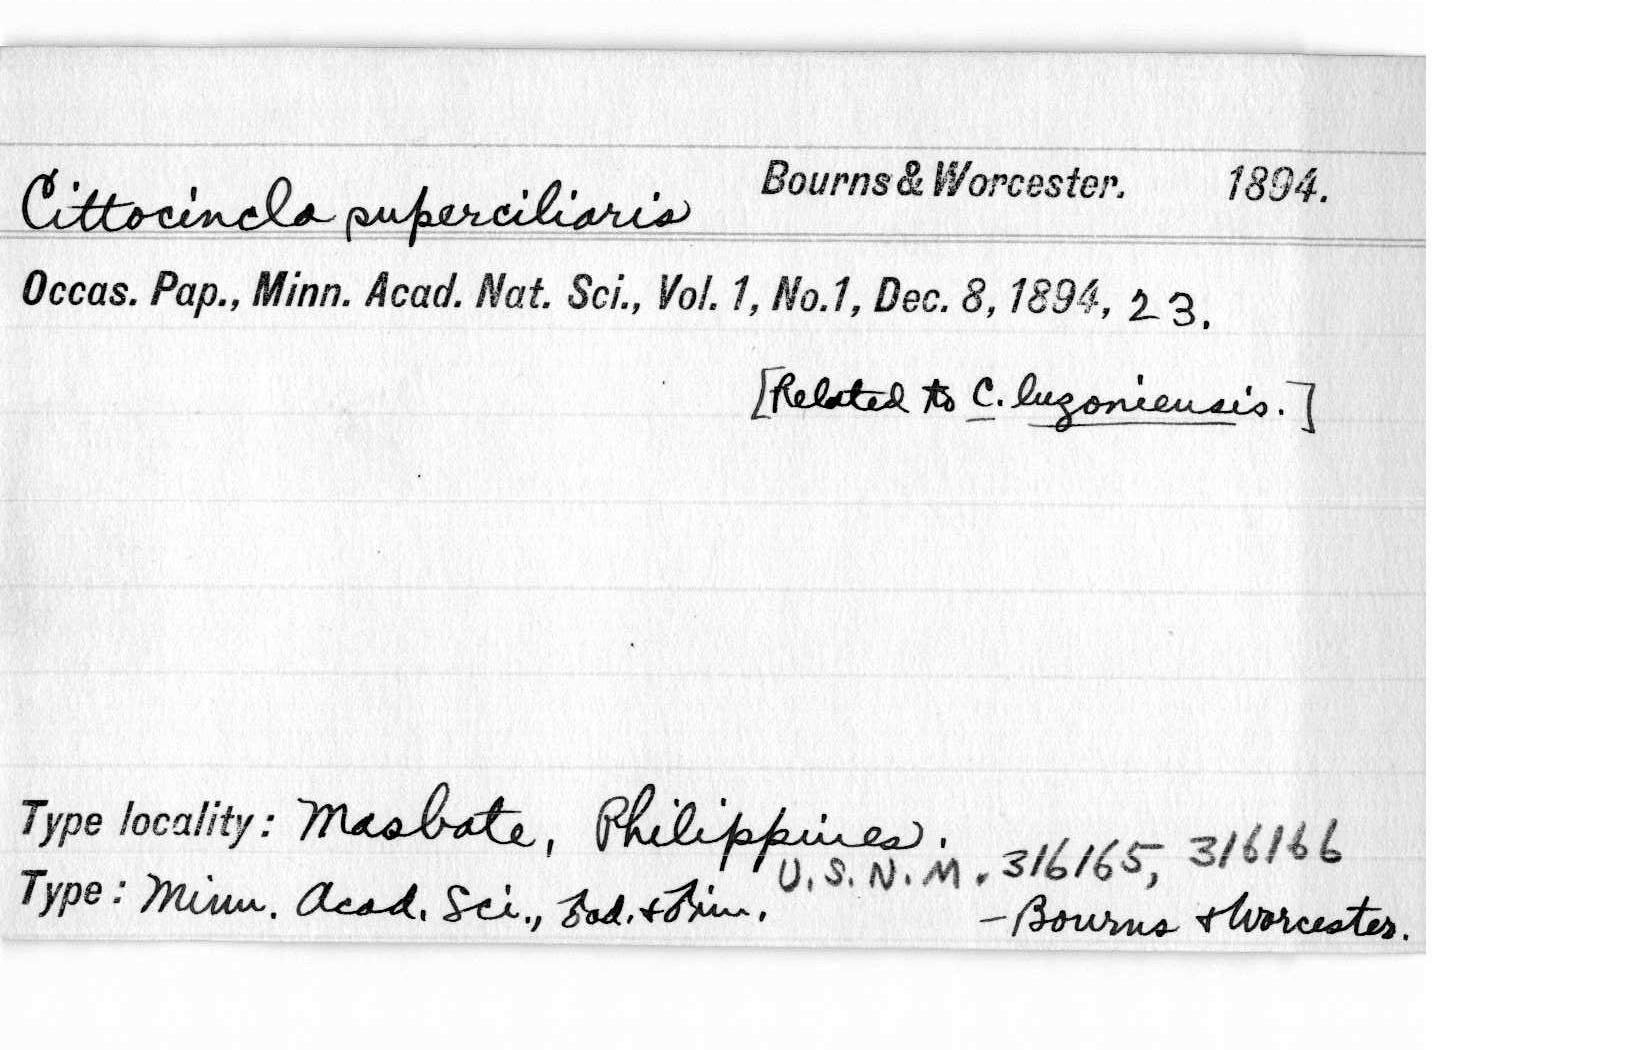 Cittocincla superciliaris Bourns & Worcester. 1894.
Occas. Pap., Minn. Acad. Nat. Sci., Vol. 1, No.1, Dec. 8, 1894, 23.
[Related to C. luzoniensis.]
Type locality: Masbate, Philippines.
U.S.N.M. 316165, 316166
Type: Minn. Acad. Sci., ♂ad. + ♂im.
— Bourns & Worcester.